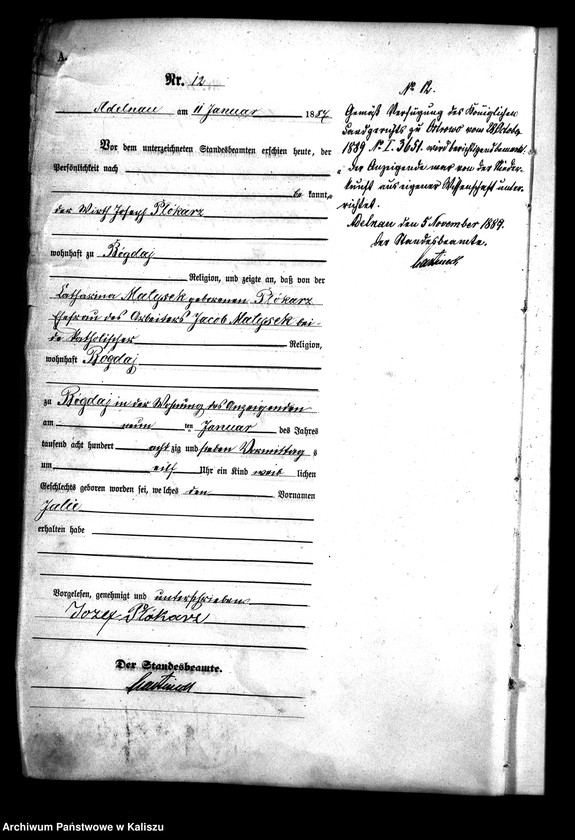 A.
Nr. 12
Adelnau am 11 Januar 1887
Vor dem unterzeichneten Standesbeamten erschien heute, der
Persönlichkeit nach
be kannt,
der Wirth Joseph Plókarz
wohnhaft zu Bógdaj
Religion, und zeigte an, daß von der
Catharina Malysek geborenen Plókarz
Ehefrau des Arbeiters Jacob Malysek bei-
de katholischer Religion,
wohnhaft Bógdaj
zu Bógdaj in der Wohnung des Anzeigenden
am neun ten Januar des Jahres
tausend acht hundert acht zig und sieben Vormittag s
um eilf Uhr ein Kind weib lichen
Geschlechts geboren worden sei, welches den Vornamen
Julie
erhalten habe
Vorgelesen, genehmigt und unterschrieben
Jozef Plókarz
Der Standesbeamte.
No 12.
Gemäß Verfügung des Königlichen
Landgerichts zu Ostrowo vom 28 Octobr
1889 No I. 3651. wird berichtigend vermerkt
Der Anzeigende war von der Nieder-
kunft aus eigener Wissenschaft unter-
richtet.
Adelnau den 5 November 1889.
Der Standesbeamte.
Archiwum Państwowe w Kaliszu